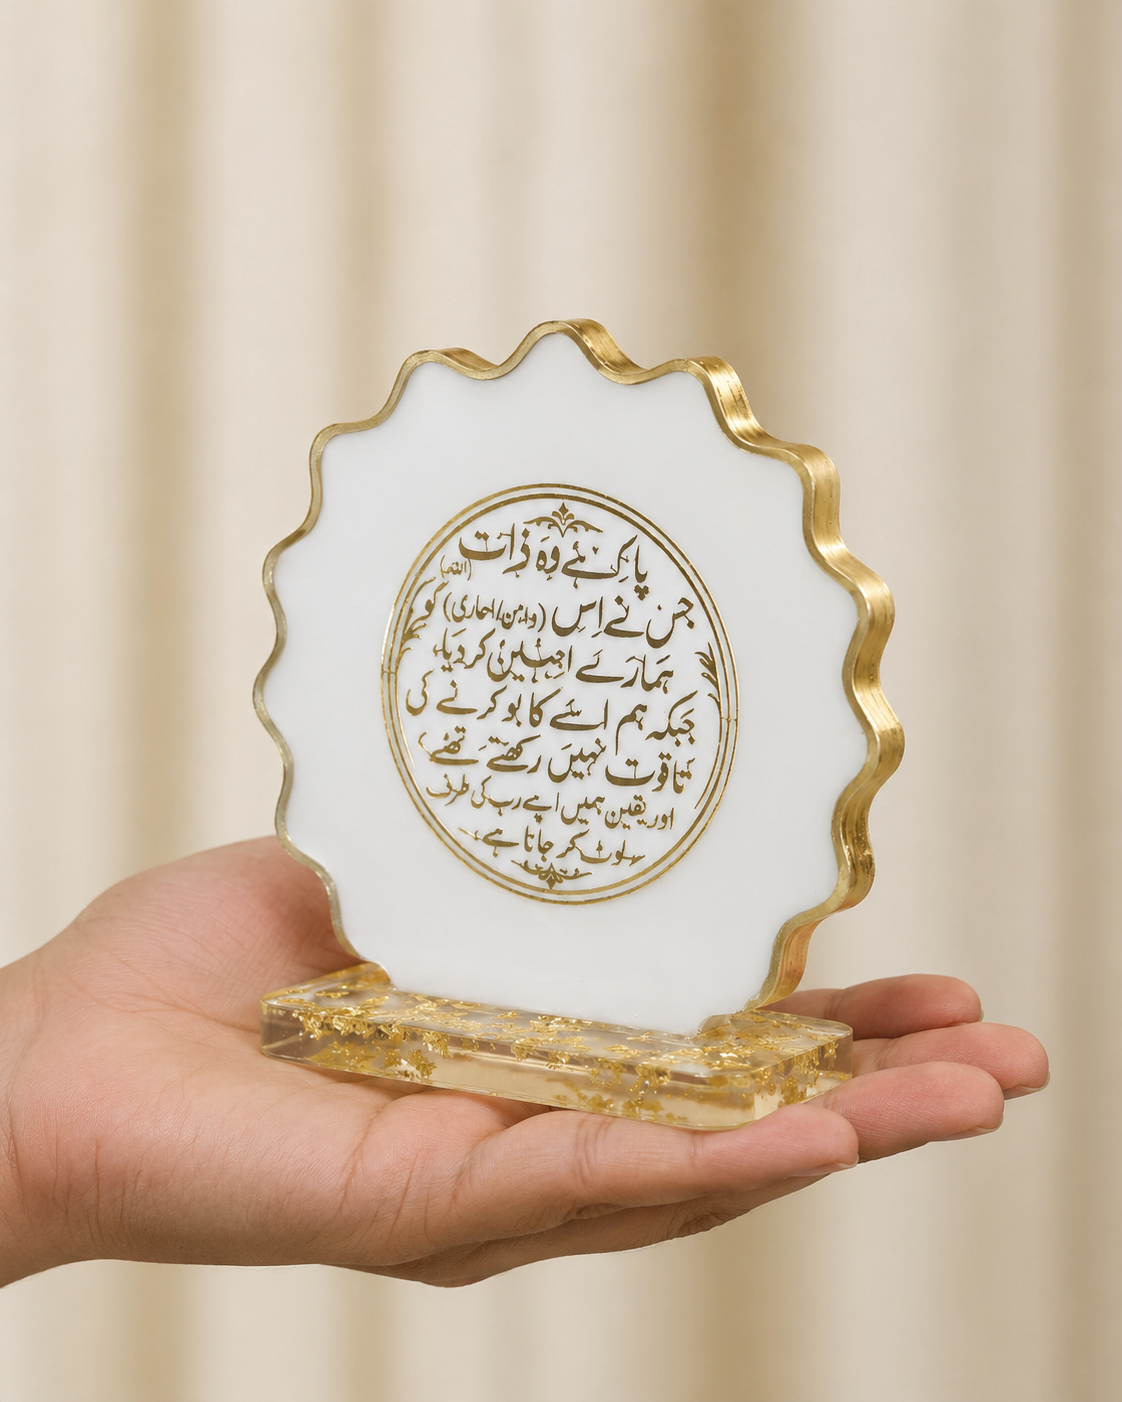 پاک ہے وہ ذات (اللہ)
جس نے اس کو
ہمارے کر دیا،
جبکہ ہم اسے کا بو کرنے کی
تاقوت نہیں رکھتے تھے
اور یقین ہمیں اپے رب کی طرف
لوٹ کر جاتا ہے